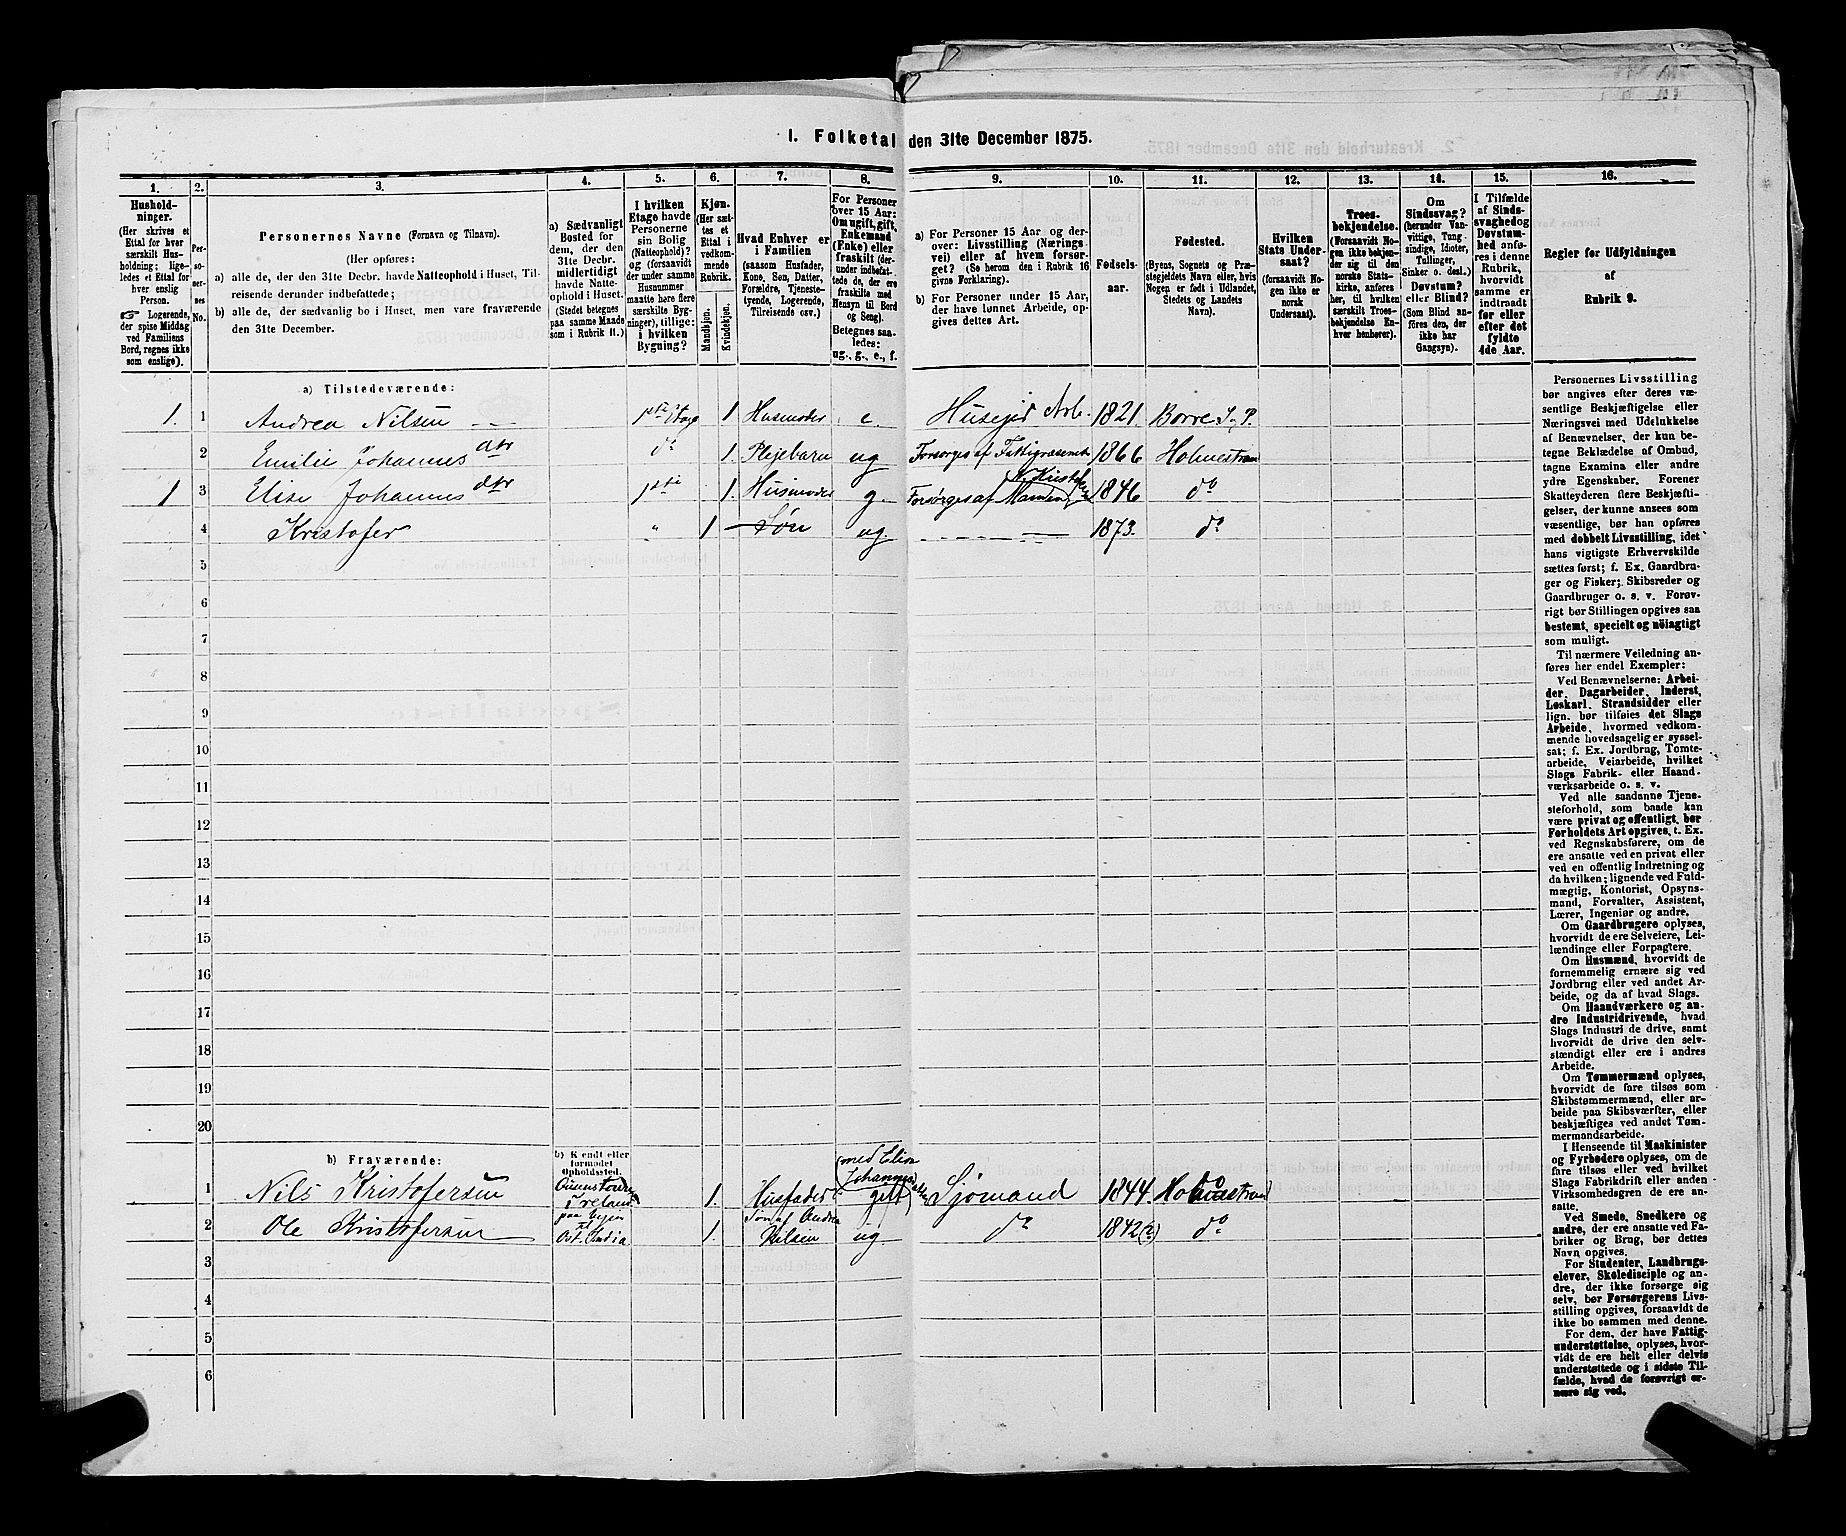 I. Folketal den 31te December 1875.
1. 2. 3. 4. 5. 6. 7. 8. 9. 10. 11. 12. 13. 14. 15. 16.
Hushold-
ninger.
(Her skrives et
Ettal for hver
særskilt Hus-
holdning; lige-
ledes et Ettal for
hver enslig
Person.
☞ Logerende,
der spise Middag
ved Familiens
Bord, regnes ikke
som enslige).
Per-
so-
ner-
nes
No.
Personernes Navne (Fornavn og Tilnavn).
(Her opføres:
a) alle de, der den 31te Decbr. havde Natteophold i Huset, Til-
reisende derunder indbefattede;
b) alle de, der sædvanlig bo i Huset, men vare fraværende
den 31te December.
a) Sædvanligt
Bosted for
dem, der den
31te Decbr.
midlertidigt
havde Natte-
ophold i Huset.
(Stedet betegnes
paa samme Maade
som i Rubrik 11.)
I hvilken
Etage havde
Personerne
sin Bolig
(Natteophold)?
og (forsaavidt
der under samme
Husnummer
maatte høre flere
særskilte Byg-
ninger), tillige:
i hvilken
Bygning?
Kjøn.
(Her sæt-
tes et
Ettal i
vedkom-
mende
Rubrik.
Mandkjøn.
Kvindekjøn.
Hvad Enhver er
i Familien
(saasom Husfader,
Kone, Søn, Datter,
Forældre, Tjeneste-
tyende, Logerende,
Tilreisende osv.)
For Personer
over 15 Aar:
Om ugift, gift,
Enkemand
(Enke) eller
fraskilt (der-
under indbefat-
tede de, der ere
fraskilte med
Hensyn til Bord
og Seng).
Betegnes saa-
ledes:
ug., g., e., f.
a) For Personer 15 Aar og der-
over: Livsstilling (Nærings-
vei) eller af hvem forsør-
get? (Se herom den i Rubrik 16
givne Forklaring).
b) For Personer under 15 Aar,
der have lønnet Arbeide, op-
gives dettes Art.
Fødsels-
aar.
Fødested.
(Byens, Sognets og Præ-
stegjeldets Navn eller, hvis
Nogen er født i Udlandet,
Stedets og Landets
Navn).
Hvilken
Stats Under-
saat?
(forsaavidt No-
gen ikke er
norsk
Undersaat).
Troes-
bekjendelse.
(Forsaavidt No-
gen ikke bekjen-
der sig til den
norske Stats-
kirke, anføres
her, til hvilken
særskilt Troes-
bekjendelse En-
hver henhører).
Om
Sindssvag?
(herunder Van-
vittige, Tung-
sindige, Idioter,
Tullinger,
Sinker o. desl.)
Døvstum?
eller Blind?
(Som Blind an-
føres den, der
ikke har
Gangsyn).
I Tilfælde
af Sinds-
svaghed og
Døvstum-
hed anfø-
res i denne
Rubrik,
hvorvidt
samme er
indtraadt
før eller
efter det
fyldte
4de Aar.
Regler før Udfyldningen
af
Rubrik 9.
a) Tilstedeværende:
1. 1 Andrea Nilsen 1ste Etage 1. Husmoder e. Husejer Arb. 1821. Borre S. P.
2 Emilie Johannesdtr do 1. Plejebarn ug Forsørges af Fattigvæsenet 1866 Holmestran
1 3 Elise Johannesdtr 1ste 1. Husmoder g. Forsørges af Manden 1846 do
4 Kristofer " 1 Søn ug. 1873. do
5
6
7
8
9
10
11
12
13
14
15
16
17
18
19
20
b) Fraværende:
b) Kjendt eller
formodet
Opholdssted.
1 Nils Kristofersen Ireland 1. Husfader gift (med Elise Johannesdatter) Sjømand 1844. Holmestrand
2 Ole Kristofersen paa Rejse til Ost. India 1. Søn af Andrea Nilsen ug do 1842(?) do
3
4
5
6
Personernes Livsstilling
bør angives efter deres væ-
sentlige Beskjæftigelse eller
Næringsvei med Udelukkelse
af Benævnelser, der kun be-
tegne Beklædelse af Ombud,
tagne Examina eller andre
ydre Egenskaber. Forener
Skatteyderen flere Beskjæfti-
gelser, der kunne ansees som
væsentlige, bør han opføres
med dobbelt Livsstilling, idet
hans vigtigste Erhvervskilde
sættes først; f. Ex. Gaardbru-
ger og Fisker; Skibsreder og
Gaardbruger o. s. v. Forøv-
rigt bør Stillingen opgives saa
bestemt, specielt og nöiagtigt
som muligt.
Til nærmere Veiledning an-
føres her endel Exempler:
Ved Benævnelserne: Arbei-
der, Dagarbeider, Inderst,
Løskarl, Strandsidder eller
lign. bør tilføies det Slags
Arbeide, hvormed vedkom-
mende hovedsagelig er syssel-
sat; f. Ex. Jordbrug, Tomte-
arbeide, Veiarbeide, hvilket
Slags Fabrik- eller Haand-
værksarbeide o. s. v.
Ved alle saadanne Tjene-
steforhold, som baade kan
være privat og offentligt, bør
Forholdets Art opgives, t. Ex.
ved Regnskabsførere, om de
ere ansatte ved en privat eller
ved en offentlig Indretning og
da hvilken; lignende ved Fuld-
mægtig, Kontorist, Opsyns-
mand, Forvalter, Assistent,
Lærer, Ingeniør og andre.
Om Gaardbrugere oplyses,
hvorvidt de ere Selveiere, Lei-
lændinge eller Forpagtere.
Om Husmænd, hvorvidt de
fornemmelig ernære sig ved
Jordbrug eller ved andet Ar-
beide, og da af hvad Slags.
Om Haandværkere og an-
dre Industridrivende, hvad
Slags Industri de drive, samt
hvorvidt de drive den selv-
stændigt eller ere i andres
Arbeide.
Om Tømmermænd oplyses,
hvorvidt de fare tilsøs som
Skibstømmermænd, eller ar-
beide paa Skibsværfter, eller
beskjæftiges ved andet Tøm-
mermandsarbeide.
I Henseende til Maskinister
og Fyrbødere oplyses, om de
fare tilsøs eller ved hvilket
Slags Fabrikdrift eller anden
Virksomhedsgren de ere an-
satte.
Ved Smede, Snedkere og
andre, der ere ansatte ved Fa-
briker og Brug, bør dettes
Navn opgives.
For Studenter, Landbrugs-
elever, Skoledisciple og an-
dre, der ikke forsørge sig
selv, bør Forsørgerens Livs-
stilling opgives, forsaavidt de
ikke bo sammen med denne.
For dem, der have Fattig-
understøttelse, oplyses, hvor-
vidt de ere helt eller delvis
understøttede og i sidste Til-
fælde, hvad de forøvrigt er-
nære sig ved.